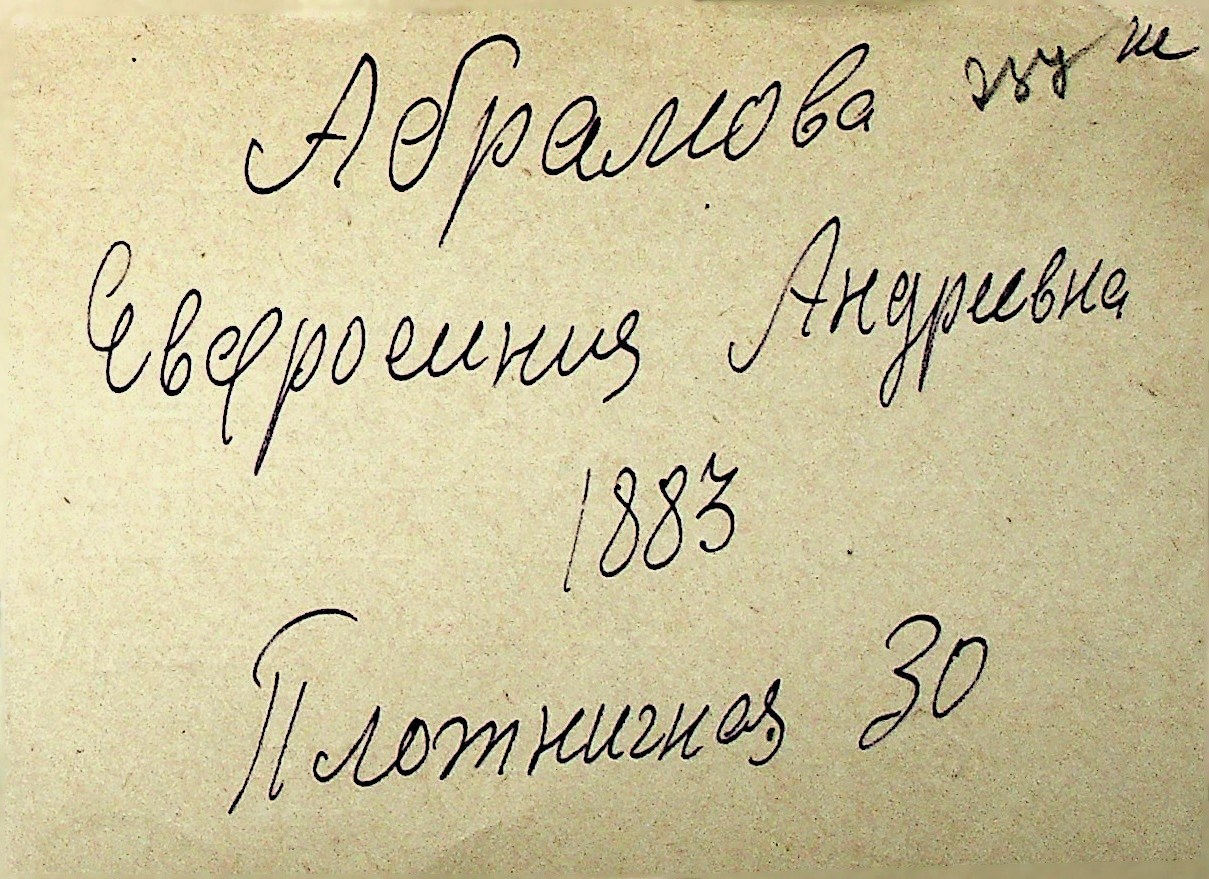 Абрамова
Евфросиния Андреевна
1883
Плотничная 30